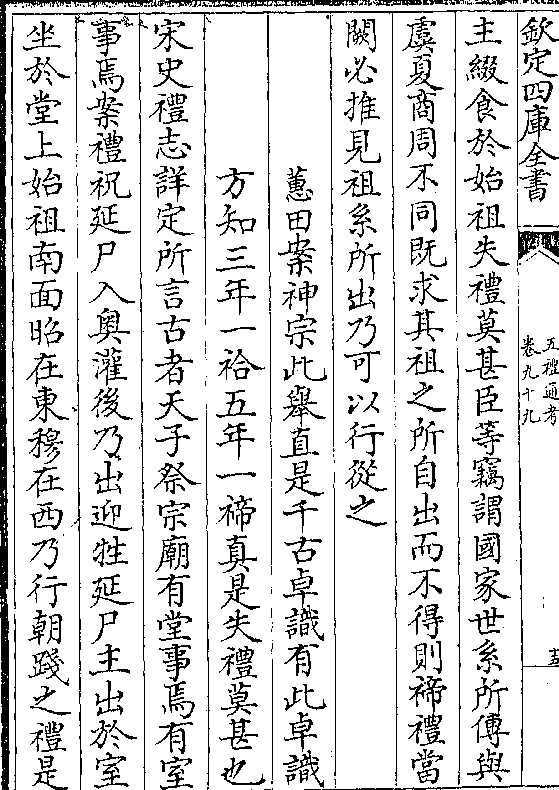 欽定四庫全書
五禮通考
卷九十九
主綴食於始祖失禮莫甚臣等竊謂國家世系所傳與
虞夏商周不同既求其祖之所自出而不得則禘禮當
闕必推見祖系所出乃可以行從之
蕙田案神宗此舉直是千古卓識有此卓識
方知三年一祫五年一禘真是失禮莫甚也
宋史禮志詳定所言古者天子祭宗廟有堂事焉有室
事焉案禮祝延尸入奥灌後乃出迎牲延尸主出於室
坐於堂上始祖南面昭在東穆在西乃行朝踐之禮是